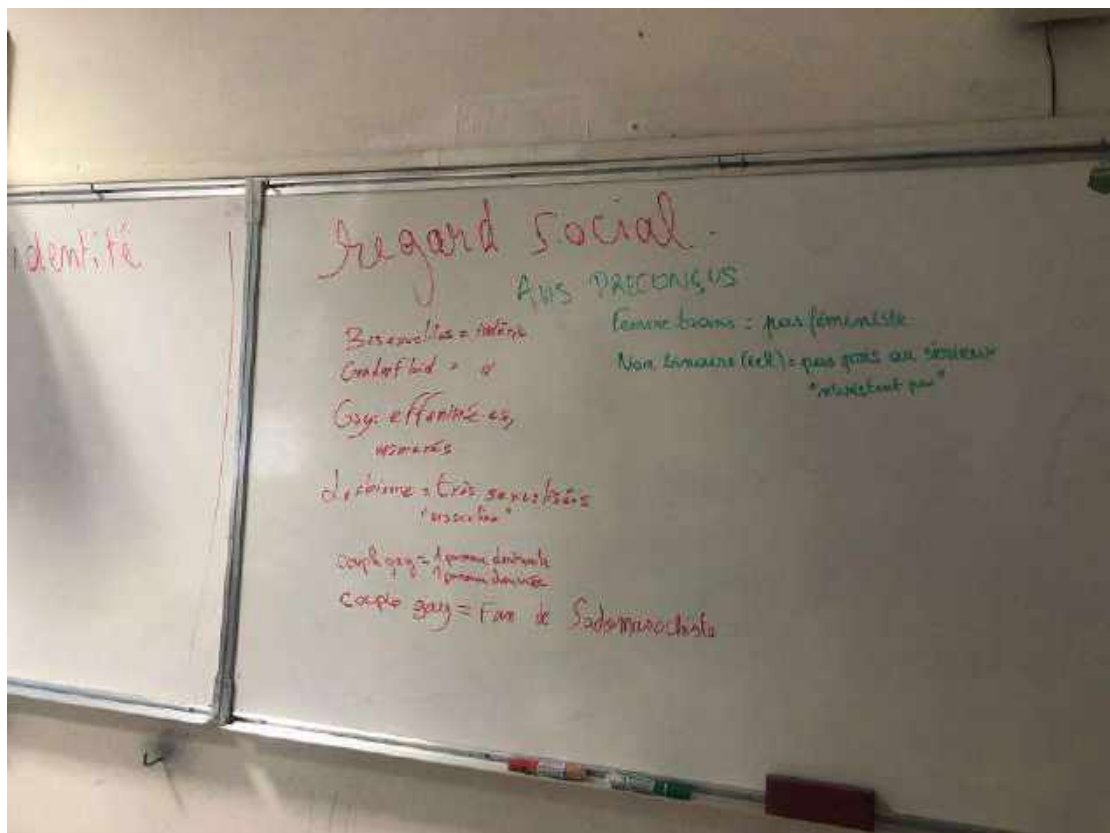 identité
regard social.
AVIS PRECONÇUS
Bisexuelles =
Genderfluid = "
Gay: efféminé es,
maniérés
= très sexualisées
couple gay = 1 personne dominante
1 personne dominée
couple gay = Fan de Sadomasochiste
Femme trans = pas féministe
Non binaire (iel) = pas pris au sérieux
"n'existent pas"